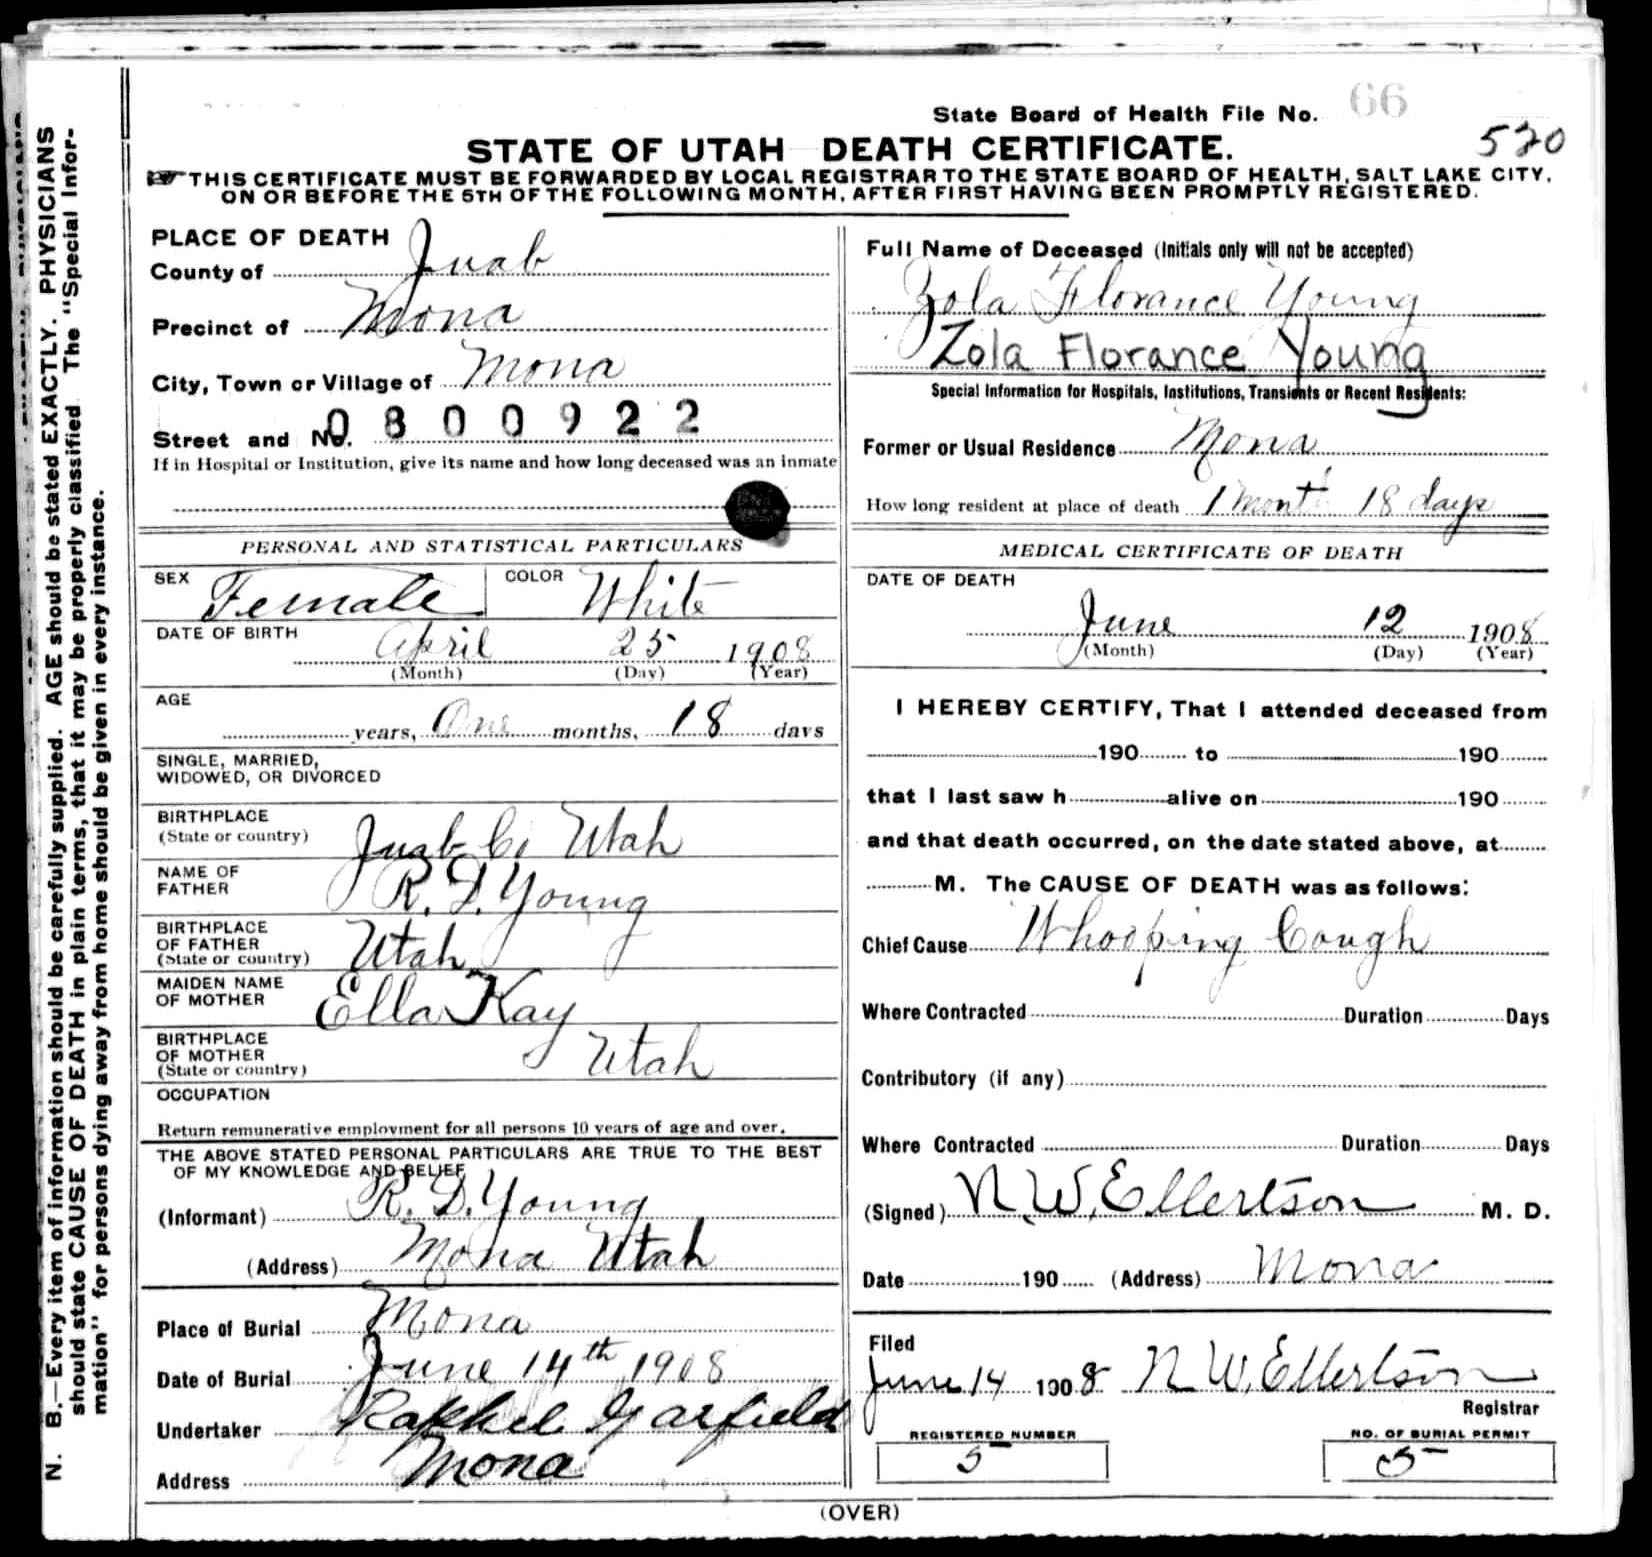 State Board of Health File No. 66
520
STATE OF UTAH DEATH CERTIFICATE.
THIS CERTIFICATE MUST BE FORWARDED BY LOCAL REGISTRAR TO THE STATE BOARD OF HEALTH, SALT LAKE CITY,
ON OR BEFORE THE 5TH OF THE FOLLOWING MONTH, AFTER FIRST HAVING BEEN PROMPTLY REGISTERED.
N. B.—Every item of information should be carefully supplied. AGE should be stated EXACTLY. PHYSICIANS
should state CAUSE OF DEATH in plain terms, that it may be properly classified. The "Special Infor-
mation" for persons dying away from home should be given in every instance.
PLACE OF DEATH
County of Juab
Precinct of Mona
City, Town or Village of Mona
Street and No. 0800922
If in Hospital or Institution, give its name and how long deceased was an inmate
PERSONAL AND STATISTICAL PARTICULARS
SEX Female COLOR White
DATE OF BIRTH
April 25 1908
(Month) (Day) (Year)
AGE
years, One months, 18 days
SINGLE, MARRIED,
WIDOWED, OR DIVORCED
BIRTHPLACE
(State or country) Juab Co Utah
NAME OF
FATHER R. D. Young
BIRTHPLACE
OF FATHER
(State or country) Utah
MAIDEN NAME
OF MOTHER Ella Kay
BIRTHPLACE
OF MOTHER
(State or country) Utah
OCCUPATION
Return remunerative employment for all persons 10 years of age and over.
THE ABOVE STATED PERSONAL PARTICULARS ARE TRUE TO THE BEST
OF MY KNOWLEDGE AND BELIEF
(Informant) R. D. Young
(Address) Mona Utah
Place of Burial Mona
Date of Burial June 14th 1908
Undertaker Raphel Garfield
Address Mona
Full Name of Deceased (Initials only will not be accepted)
Zola Florance Young
Zola Florance Young
Special Information for Hospitals, Institutions, Transients or Recent Residents:
Former or Usual Residence Mona
How long resident at place of death 1 Mont 18 days
MEDICAL CERTIFICATE OF DEATH
DATE OF DEATH
June 12 1908
(Month) (Day) (Year)
I HEREBY CERTIFY, That I attended deceased from
190 to 190
that I last saw h alive on 190
and that death occurred, on the date stated above, at
M. The CAUSE OF DEATH was as follows:
Chief Cause Whooping Cough
Where Contracted Duration Days
Contributory (if any)
Where Contracted Duration Days
(Signed) N. W. Ellertson M. D.
Date 190 (Address) Mona
Filed
June 14 1908 N. W. Ellertson
Registrar
REGISTERED NUMBER
5
NO. OF BURIAL PERMIT
5
(OVER)